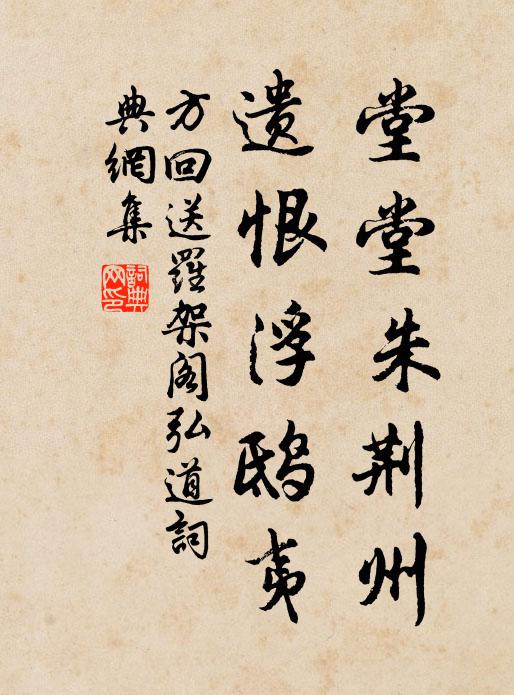 堂堂朱荆州
遗恨浮鸱夷
方回送羅架阁弘道詞
典網集
詞典网印